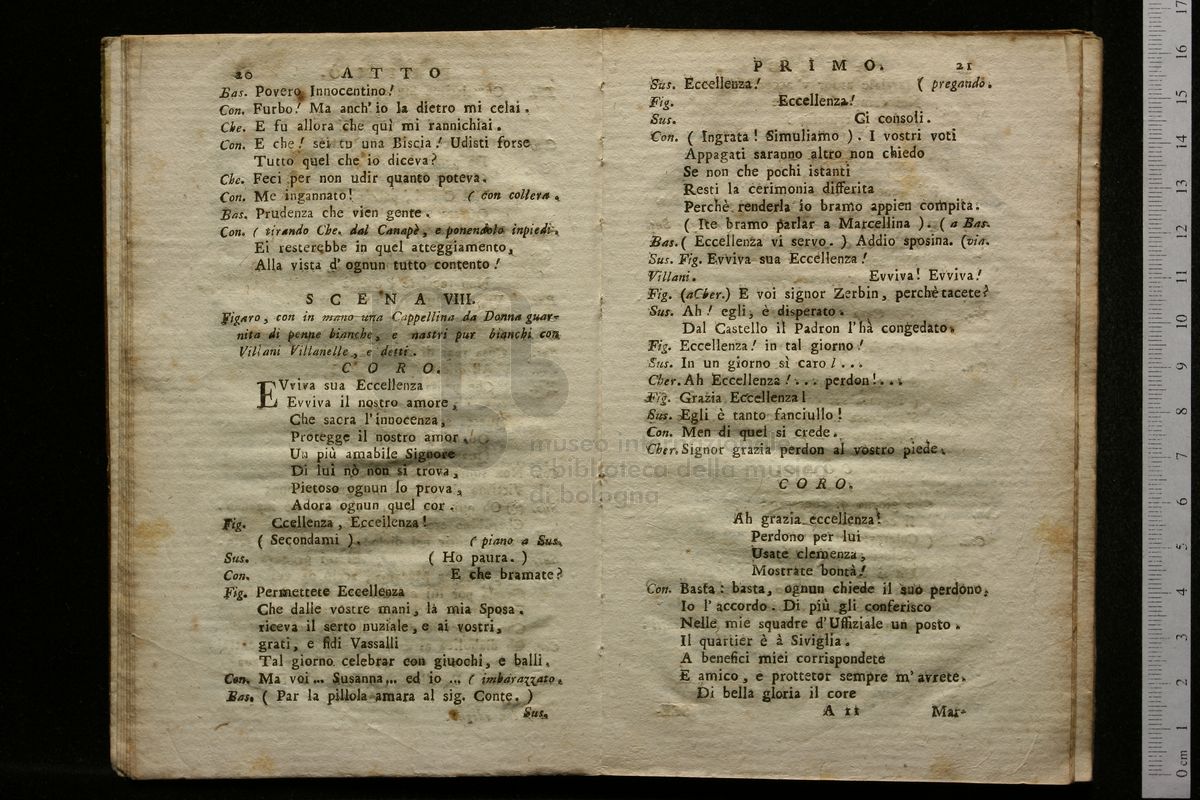 20 ATTO
Bas. Povero Innocentino!
Con. Furbo! Ma anch' io la dietro mi celai.
Che. E fu allora che quì mi rannichiai.
Con. E che! sei tu una Biscia! Udisti forse
Tutto quel che io diceva?
Che. Feci per non udir quanto poteva.
Con. Me ingannato! ( con collera.
Bas. Prudenza che vien gente.
Con. ( tirando Che. dal Canapè, e ponendolo inpiedi.
Ei resterebbe in quel atteggiamento,
Alla vista d' ognun tutto contento!
SCENA VIII.
Figaro, con in mano una Cappellina da Donna guar-
nita di penne bianche, e nastri pur bianchi con
Villani Villanelle, e detti.
CORO.
EVviva sua Eccellenza
Evviva il nostro amore,
Che sacra l'innocenza,
Protegge il nostro amor.
Un più amabile Signore
Di lui nò non si trova,
Pietoso ognun lo prova,
Adora ognun quel cor.
Fig. Ccellenza, Eccellenza!
( Secondami ). ( piano a Sus.
Sus. ( Ho paura. )
Con. E che bramate?
Fig. Permettete Eccellenza
Che dalle vostre mani, la mia Sposa.
riceva il serto nuziale, e ai vostri,
grati, e fidi Vassalli
Tal giorno celebrar con giuochi, e balli.
Con. Ma voi... Susanna... ed io ... ( imbarazzato.
Bas. ( Par la pillola amara al sig. Conte. )
Sus.
PRIMO. 21
Sus. Eccellenza! ( pregando.
Fig. Eccellenza!
Sus. Ci consoli.
Con. ( Ingrata! Simuliamo ). I vostri voti
Appagati saranno altro non chiedo
Se non che pochi istanti
Resti la cerimonia differita
Perchè renderla io bramo appien compita.
( Ite bramo parlar a Marcellina ). ( a Bas.
Bas. ( Eccellenza vi servo. ) Addio sposina. (via.
Sus. Fig. Evviva sua Eccellenza!
Villani. Evviva! Evviva!
Fig. (aCher.) E voi signor Zerbin, perchè tacete?
Sus. Ah! egli, è disperato.
Dal Castello il Padron l'hà congedato.
Fig. Eccellenza! in tal giorno!
Sus. In un giorno sì caro!...
Cher. Ah Eccellenza!... perdon!...
Fig. Grazia Eccellenza!
Sus. Egli è tanto fanciullo!
Con. Men di quel si crede.
Cher. Signor grazia perdon al vostro piede.
CORO.
Ah grazia eccellenza!
Perdono per lui
Usate clemenza,
Mostrate bontà!
Con. Basta: basta, ognun chiede il suo perdono,
Io l'accordo. Di più gli conferisco
Nelle mie squadre d'Uffiziale un posto.
Il quartier è à Siviglia.
A benefici miei corrispondete
E amico, e prottetor sempre m'avrete.
Di bella gloria il core
A 11 Mar-
museo internazionale
e biblioteca della musica
di bologna
0 cm 1 2 3 4 5 6 7 8 9 10 11 12 13 14 15 16 17